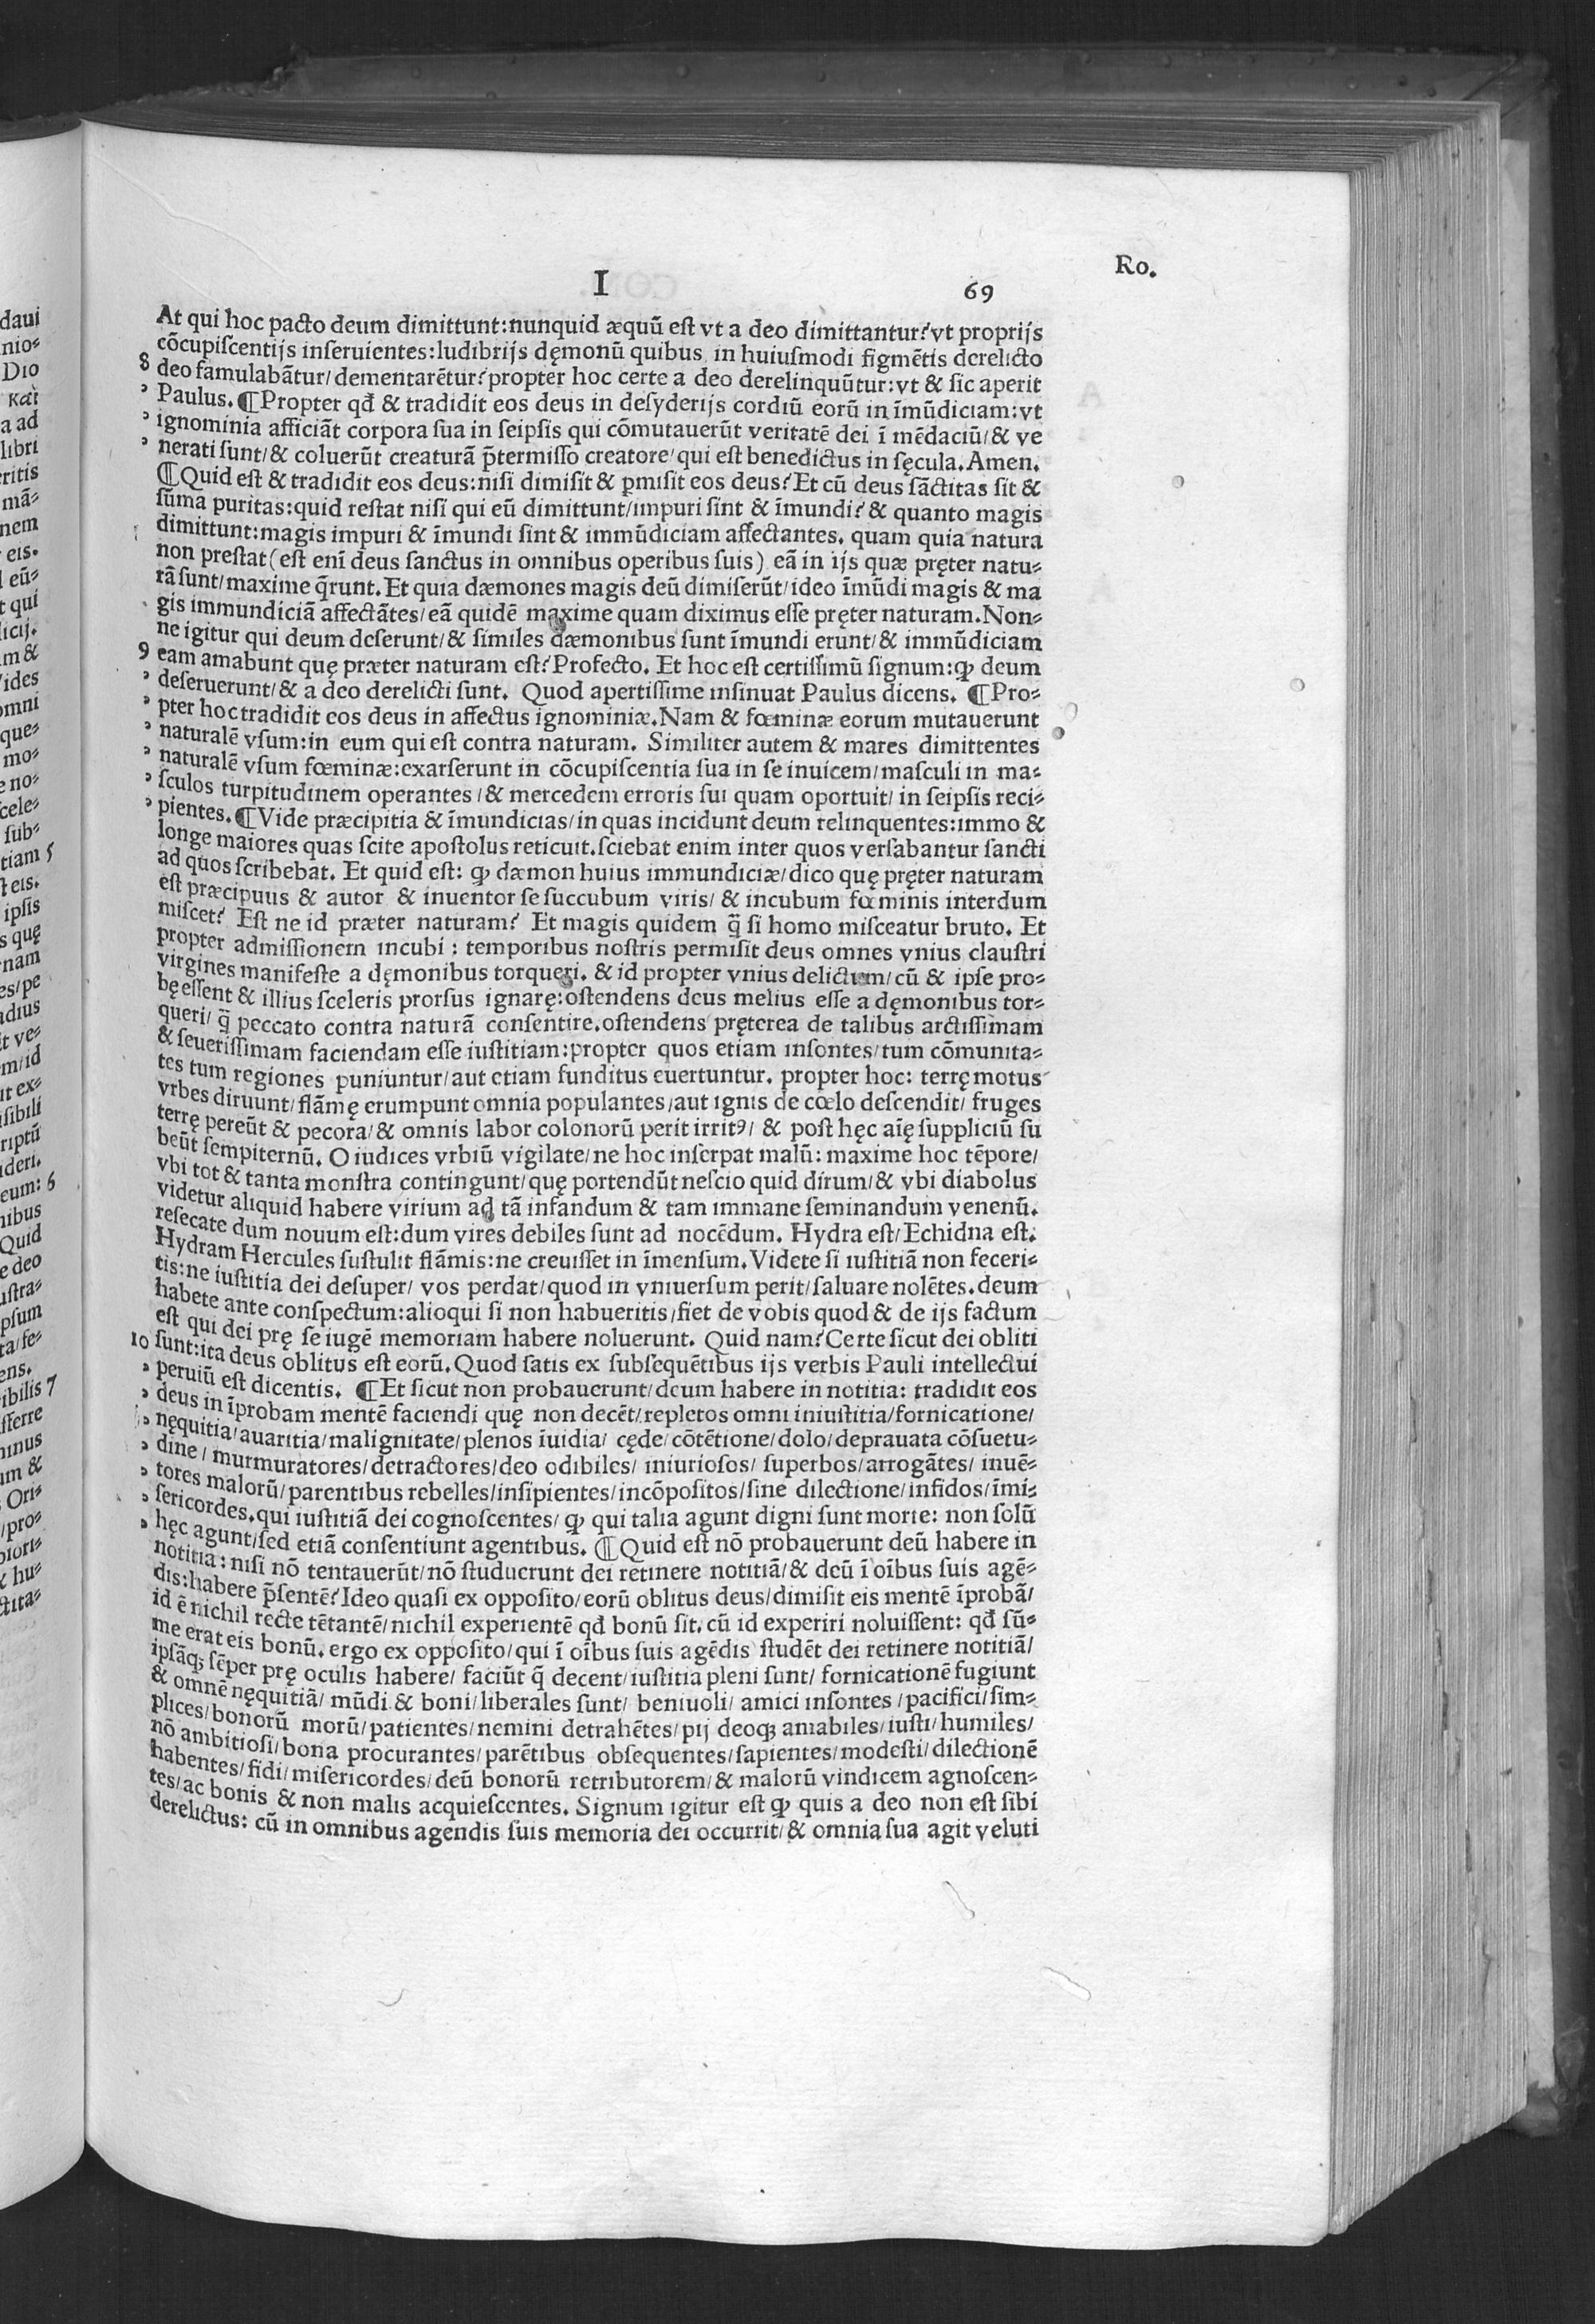 I
69
Ro.
At qui hoc pacto deum dimittunt:nunquid æquū eſt vt a deo dimittantur?vt proprijs
cōcupiſcentijs inſeruientes:ludibrijs dęmonū quibus in huiuſmodi figmētis derelicto
8 deo famulabātur/dementarētur?propter hoc certe a deo derelinquūtur:vt & ſic aperit
Paulus.¶Propter qđ & tradidit eos deus in deſyderijs cordiū eorū in īmūdiciam:vt
ignominia afficiāt corpora ſua in ſeipſis qui cōmutauerūt veritatē dei ī mēdaciū/& ve
nerati ſunt/& coluerūt creaturā p̄termiſſo creatore/qui eſt benedictus in ſęcula.Amen.
¶Quid eſt & tradidit eos deus:niſi dimiſit & ꝑmiſit eos deus?Et cū deus ſāctitas ſit &
ſūma puritas:quid reſtat niſi qui eū dimittunt/impuri ſint & īmundi?& quanto magis
dimittunt:magis impuri & īmundi ſint & immūdiciam affectantes. quam quia natura
non preſtat(eſt enī deus ſanctus in omnibus operibus ſuis) eā in ijs quæ pręter natu⸗
rā ſunt/maxime q̄runt.Et quia dæmones magis deū dimiſerūt/ideo īmūdi magis & ma
gis immundiciā affectātes/eā quidē maxime quam diximus eſſe pręter naturam.Non⸗
ne igitur qui deum deſerunt/& ſimiles dæmonibus ſunt īmundi erunt/& immūdiciam
9 eam amabunt quę præter naturam eſt?Profecto. Et hoc eſt certiſſimū ſignum:ꝙ deum
deſeruerunt/& a deo derelicti ſunt. Quod apertiſſime inſinuat Paulus dicens. ¶Pro⸗
pter hoc tradidit eos deus in affectus ignominiæ.Nam & fœminæ eorum mutauerunt
naturalē vſum:in eum qui eſt contra naturam. Similiter autem & mares dimittentes
naturalē vſum fœminæ:exarſerunt in cōcupiſcentia ſua in ſe inuicem/maſculi in ma⸗
ſculos turpitudinem operantes/& mercedem erroris ſui quam oportuit/in ſeipſis reci⸗
pientes.¶Vide præcipitia & īmundicias/in quas incidunt deum relinquentes:immo &
longe maiores quas ſcite apoſtolus reticuit.ſciebat enim inter quos verſabantur ſancti
ad quos ſcribebat. Et quid eſt: ꝙ dæmon huius immundiciæ/dico quę pręter naturam
eſt præcipuus & autor & inuentor ſe ſuccubum viris/ & incubum fœminis interdum
miſcet? Eſt ne id præter naturam? Et magis quidem q̄ ſi homo miſceatur bruto. Et
propter admiſſionem incubi : temporibus noſtris permiſit deus omnes vnius clauſtri
virgines manifeſte a dęmonibus torqueri. & id propter vnius delictum/cū & ipſe pro⸗
bę eſſent & illius ſceleris prorſus ignarę:oſtendens deus melius eſſe a dęmonibus tor⸗
queri/ q̄ peccato contra naturā conſentire.oſtendens pręterea de talibus arctiſſimam
& ſeueriſſimam faciendam eſſe iuſtitiam:propter quos etiam inſontes/tum cōmunita⸗
tes tum regiones puniuntur/aut etiam funditus euertuntur. propter hoc: terrę motus
vrbes diruunt/flāmę erumpunt omnia populantes/aut ignis de cœlo deſcendit/ fruges
terrę pereūt & pecora/& omnis labor colonorū perit irritꝰ/ & poſt hęc aīę ſuppliciū ſu
beūt ſempiternū. O iudices vrbiū vigilate/ne hoc inſerpat malū: maxime hoc tēpore/
vbi tot & tanta monſtra contingunt/quę portendūt neſcio quid dirum/& vbi diabolus
videtur aliquid habere virium ad tā infandum & tam immane ſeminandum venenū.
reſecate dum nouum eſt:dum vires debiles ſunt ad nocēdum. Hydra eſt/Echidna eſt.
Hydram Hercules ſuſtulit flāmis:ne creuiſſet in īmenſum.Videte ſi iuſtitiā non feceri⸗
tis:ne iuſtitia dei deſuper/ vos perdat/quod in vniuerſum perit/ſaluare nolētes.deum
habete ante conſpectum:alioqui ſi non habueritis/fiet de vobis quod & de ijs factum
eſt qui dei prę ſe iugē memoriam habere noluerunt. Quid nam?Certe ſicut dei obliti
10 ſunt:ita deus oblitus eſt eorū.Quod ſatis ex ſubſequētibus ijs verbis Pauli intellectui
peruiū eſt dicentis. ¶Et ſicut non probauerunt/deum habere in notitia: tradidit eos
deus in īprobam mentē faciendi quę non decēt/repletos omni iniuſtitia/fornicatione/
nęquitia/auaritia/malignitate/plenos īuidia/ cęde/cōtētione/dolo/deprauata cōſuetu⸗
dine/murmuratores/detractores/deo odibiles/ iniurioſos/ ſuperbos/arrogātes/ inuē⸗
tores malorū/parentibus rebelles/inſipientes/incōpoſitos/ſine dilectione/infidos/īmi⸗
ſericordes.qui iuſtitiā dei cognoſcentes/ ꝙ qui talia agunt digni ſunt morte: non ſolū
hęc agunt/ſed etiā conſentiunt agentibus. ¶Quid eſt nō probauerunt deū habere in
notitia: niſi nō tentauerūt/nō ſtuduerunt dei retinere notitiā/& deū ī oībus ſuis agē⸗
dis:habere p̄ſentē?Ideo quaſi ex oppoſito/eorū oblitus deus/dimiſit eis mentē īprobā/
id ē nichil recte tētantē/nichil experientē qđ bonū ſit.cū id experiri noluiſſent: qđ ſū⸗
me erat eis bonū.ergo ex oppoſito/qui ī oībus ſuis agēdis ſtudēt dei retinere notitiā/
ipſāq; ſēper prę oculis habere/ faciūt q̄ decent/iuſtitia pleni ſunt/ fornicationē fugiunt
& omnē nęquitiā/ mūdi & boni/liberales ſunt/ beniuoli/ amici inſontes/pacifici/ſim⸗
plices/bonorū morū/patientes/nemini detrahētes/pij deoq; amabiles/iuſti/humiles/
nō ambitioſi/bona procurantes/parētibus obſequentes/ſapientes/modeſti/dilectionē
habentes/fidi/miſericordes/deū bonorū retributorem/& malorū vindicem agnoſcen⸗
tes/ac bonis & non malis acquieſcentes. Signum igitur eſt ꝙ quis a deo non eſt ſibi
derelictus: cū in omnibus agendis ſuis memoria dei occurrit/& omnia ſua agit veluti